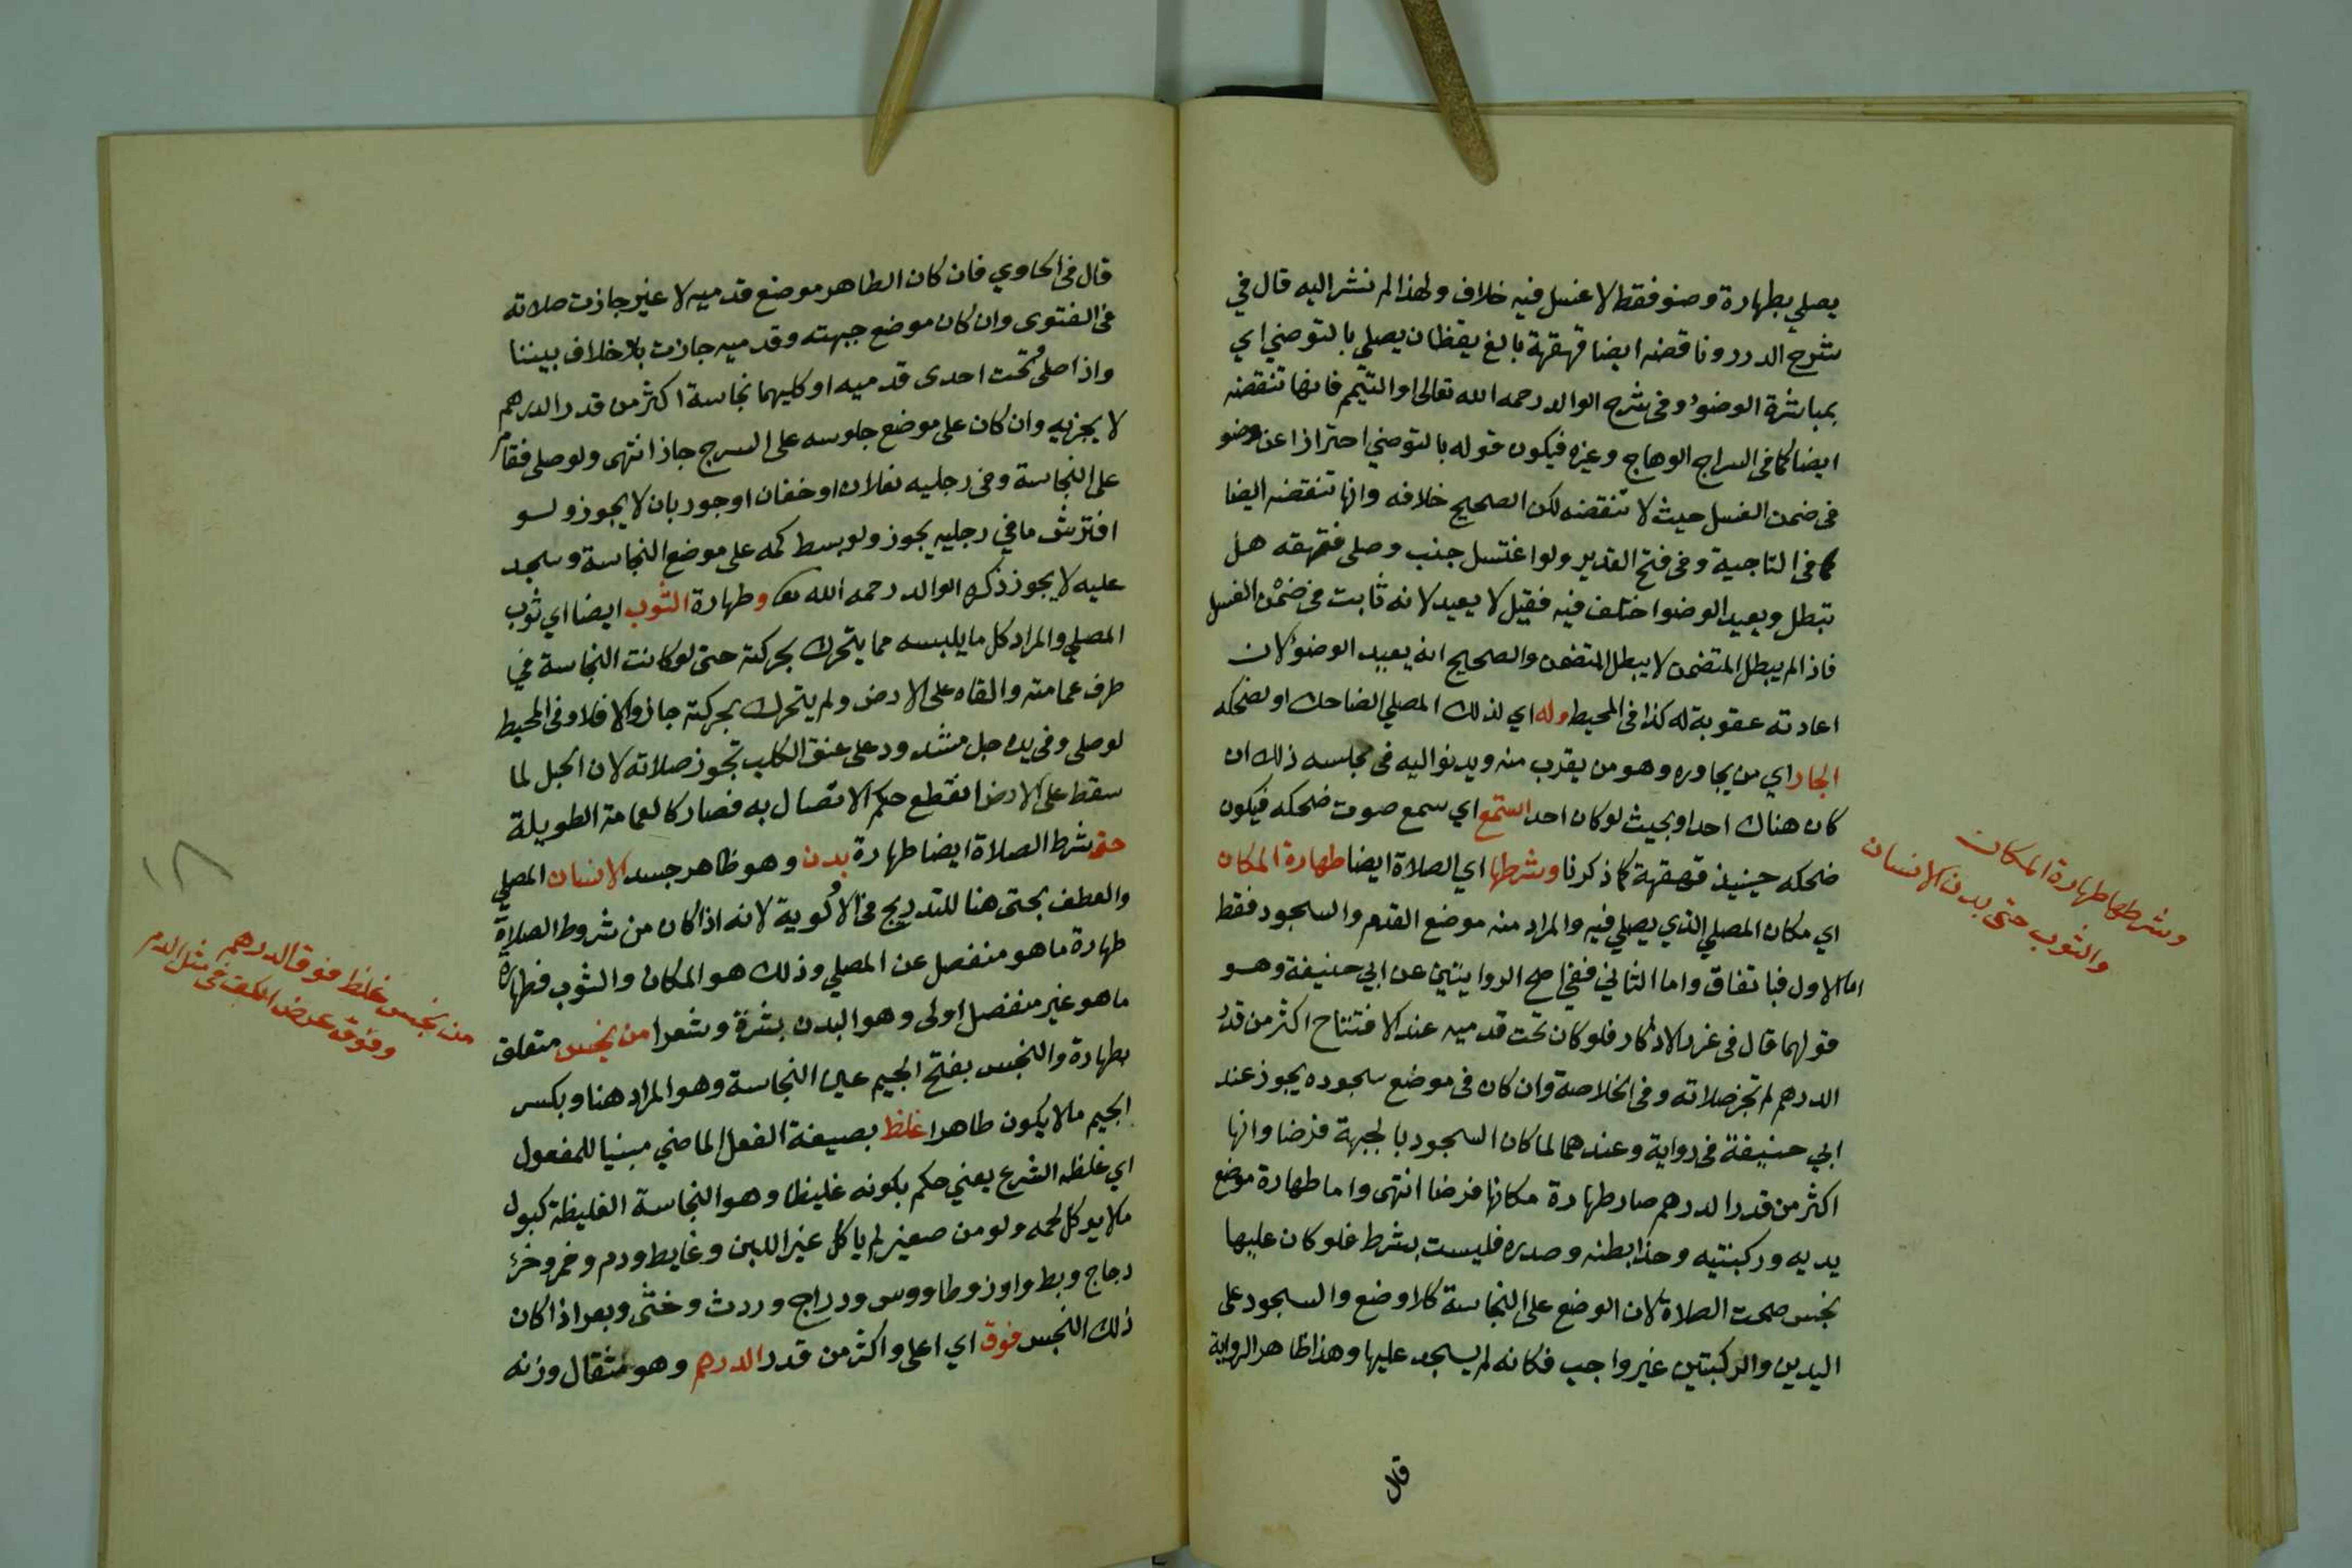 يصلي بطهارة وضوء فقط لا غسل فيه خلاف ولهذا لم نشر اليه قال في
شرح الدرر وناقضه ايضا قهقهة بالغ يقظان يصلي بالتوضي اي
بمباشرة الوضوء وفي شرح الوالد رحمه الله تعالى او التيمم فانها تنقضه
ايضا كما في السراج الوهاج وغيره فيكون قوله بالتوضي احترازا عن وضو
في ضمن الغسل حيث لا تنقضه لكن الصحيح خلافه وانها تنقضه ايضا
كما في التاجية وفي فتح القدير ولو اغتسل جنب وصلى فقهقه هل
تبطل ويعيد الوضوا ختلف فيه فقيل لا يعيد لانه ثابت في ضمن الغسل
فاذا لم يبطل المتضمن لا يبطل المتضمن والصحيح انه يعيد الوضوء لان
اعادته عقوبة له كذا في المحيط وله اي لذلك المصلي الضاحك او لضحكه
الجار اي من يجاوره وهو من يقرب منه ويدنو اليه في مجلسه ذلك ان
كان هناك احد او بحيث لو كان احد استمع اي سمع صوت ضحكه فيكون
ضحكه حينيذ قهقهة كما ذكرنا وشرطها اي الصلاة ايضا طهارة المكان
اي مكان المصلي الذي يصلي فيه والمراد منه موضع القدم والسجود فقط
اما الاول فباتفاق واما الثاني ففي اصح الروايتين عن ابي حنيفة وهو
قولهما قال في غرر الاذكار فلو كان تحت قدميه عند الافتتاح اكثر من قدر
الدرهم لم تجز صلاته وفي الخلاصة وان كان في موضع سجوده يجوز عند
ابي حنيفة في رواية وعندهما لما كان السجود بالجبهة فرضا وانها
اكثر من قدر الدرهم صار طهارة مكانها فرضا انتهى واما طهارة موضع
يديه وركبتيه وحذا بطنه وصدره فليست بشرط فلو كان عليها
نجس صحت الصلاة لان الوضع على النجاسة كلا وضع والسجود على
اليدين والركبتين غير واجب فكانه لم يسجد عليها وهذا ظاهر الرواية
قال
وشرطها طهارة المكان
والثوب حتى بدن الانسان
قال في الحاوي فان كان الطاهر موضع قدميه لا غير جازت صلاته
في الفتوى وان كان موضع جبهته وقدميه جازت بلا خلاف بيننا
واذا صلى وتحت احدى قدميه او كليهما نجاسة اكثر من قدر الدرهم
لا يجزيه وان كان على موضع جلوسه على السرج جاز انتهى ولو صلى فقام
على النجاسة وفي رجليه نعلان او خفان او جوربان لا يجوز ولو
افترش ما في رجليه يجوز ولو بسط كمه على موضع النجاسة وسجد
عليه لا يجوز ذكره الوالد رحمه الله تعا وطهارة الثوب ايضا اي ثوب
المصلي والمراد كل ما يلبسه مما يتحرك بحركته حتى لو كانت النجاسة في
طرف عمامته والقاه على الارض ولم يتحرك بحركته جاز والا فلا وفي المحيط
لو صلى وفي يده حبل مشدود على عنق الكلب تجوز صلاته لان الحبل لما
سقط على الارض انقطع حكم الاتصال به فصار كالعمامة الطويلة
حتى شرط الصلاة ايضا طهارة بدن وهو ظاهر جسد الانسان المصلي
والعطف بحتى هنا للتدريج في الاولوية لانه اذا كان من شروط الصلاة
طهارة ما هو منفصل عن المصلي وذلك هو المكان والثوب فطهارة
ما هو غير منفصل اولى وهو البدن بشرة وشعرا من نجس متعلق
بطهارة والنجس بفتح الجيم عين النجاسة وهو المراد هنا وبكسر
الجيم ما لا يكون طاهرا غلظ بصيغة الفعل الماضي مبنيا للمفعول
اي غلظه الشرع يعني حكم بكونه غليظا وهو النجاسة الغليظة كبول
ما لا يوكل لحمه ولو من صغير لم ياكل غير اللبن وغايط ودم وخمر وخرء
دجاج وبط واوز وطاووس ودراج وروث وخثى وبعر اذا كان
ذلك النجس فوق اي اعلى واكثر من قدر الدرهم وهو مثقال وزنه
من نجس غلظ فوق الدرهم
وفوق عرض الكف في مثل الدم
١٨